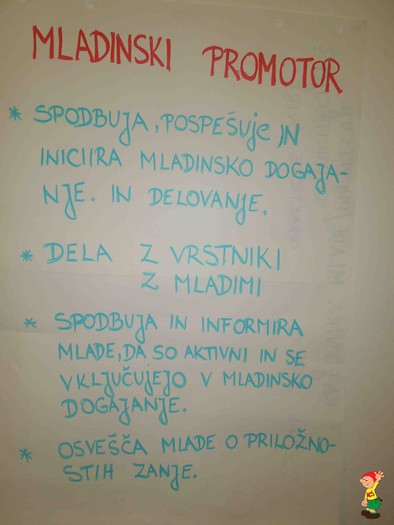 MLADINSKI PROMOTOR
* SPODBUJA, POSPEŠUJE, IN
INICIIRA MLADINSKO DOGAJA-
NJE. IN DELOVANJE.
* DELA Z VRSTNIKI
Z MLADIMI
* SPODBUJA IN INFORMIRA
MLADE, DA SO AKTIVNI IN SE
VKLJUČUJEJO V MLADINSKO
DOGAJANJE.
* OSVEŠČA MLADE O PRILOŽNO-
STIH ZANJE.